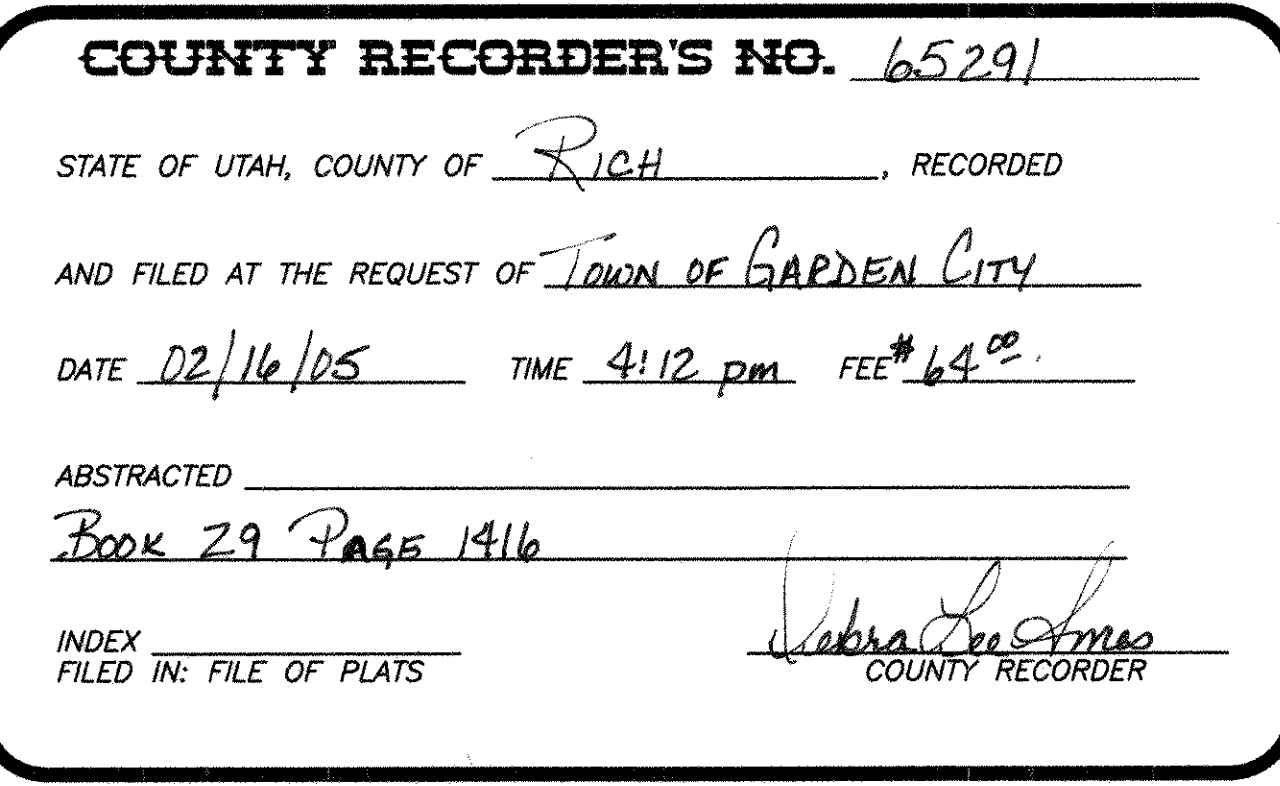 COUNTY RECORDER'S NO. 65291
STATE OF UTAH, COUNTY OF RICH, RECORDED
AND FILED AT THE REQUEST OF TOWN OF GARDEN CITY
DATE 02/16/05 TIME 4:12 pm FEE $64.00
ABSTRACTED
BOOK 29 PAGE 1416
INDEX
Debra Lee Ames
FILED IN: FILE OF PLATS COUNTY RECORDER